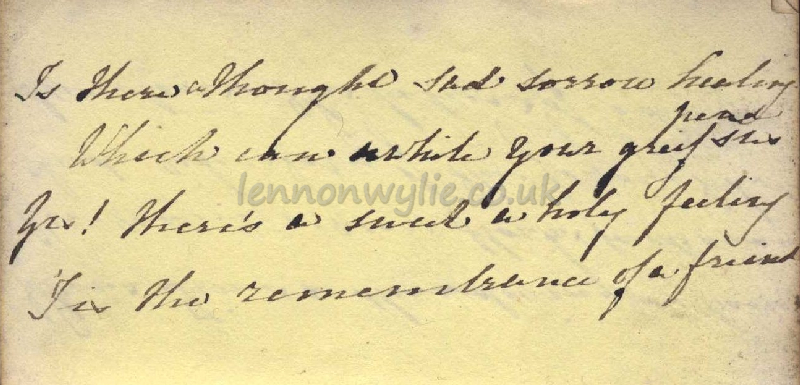 Is there a thought sad sorrow healing
pend
Which can awhile your grief sus
lennonwylie.co.uk
Yes! there's a sweet a holy feeling
Tis the remembrance of a friend